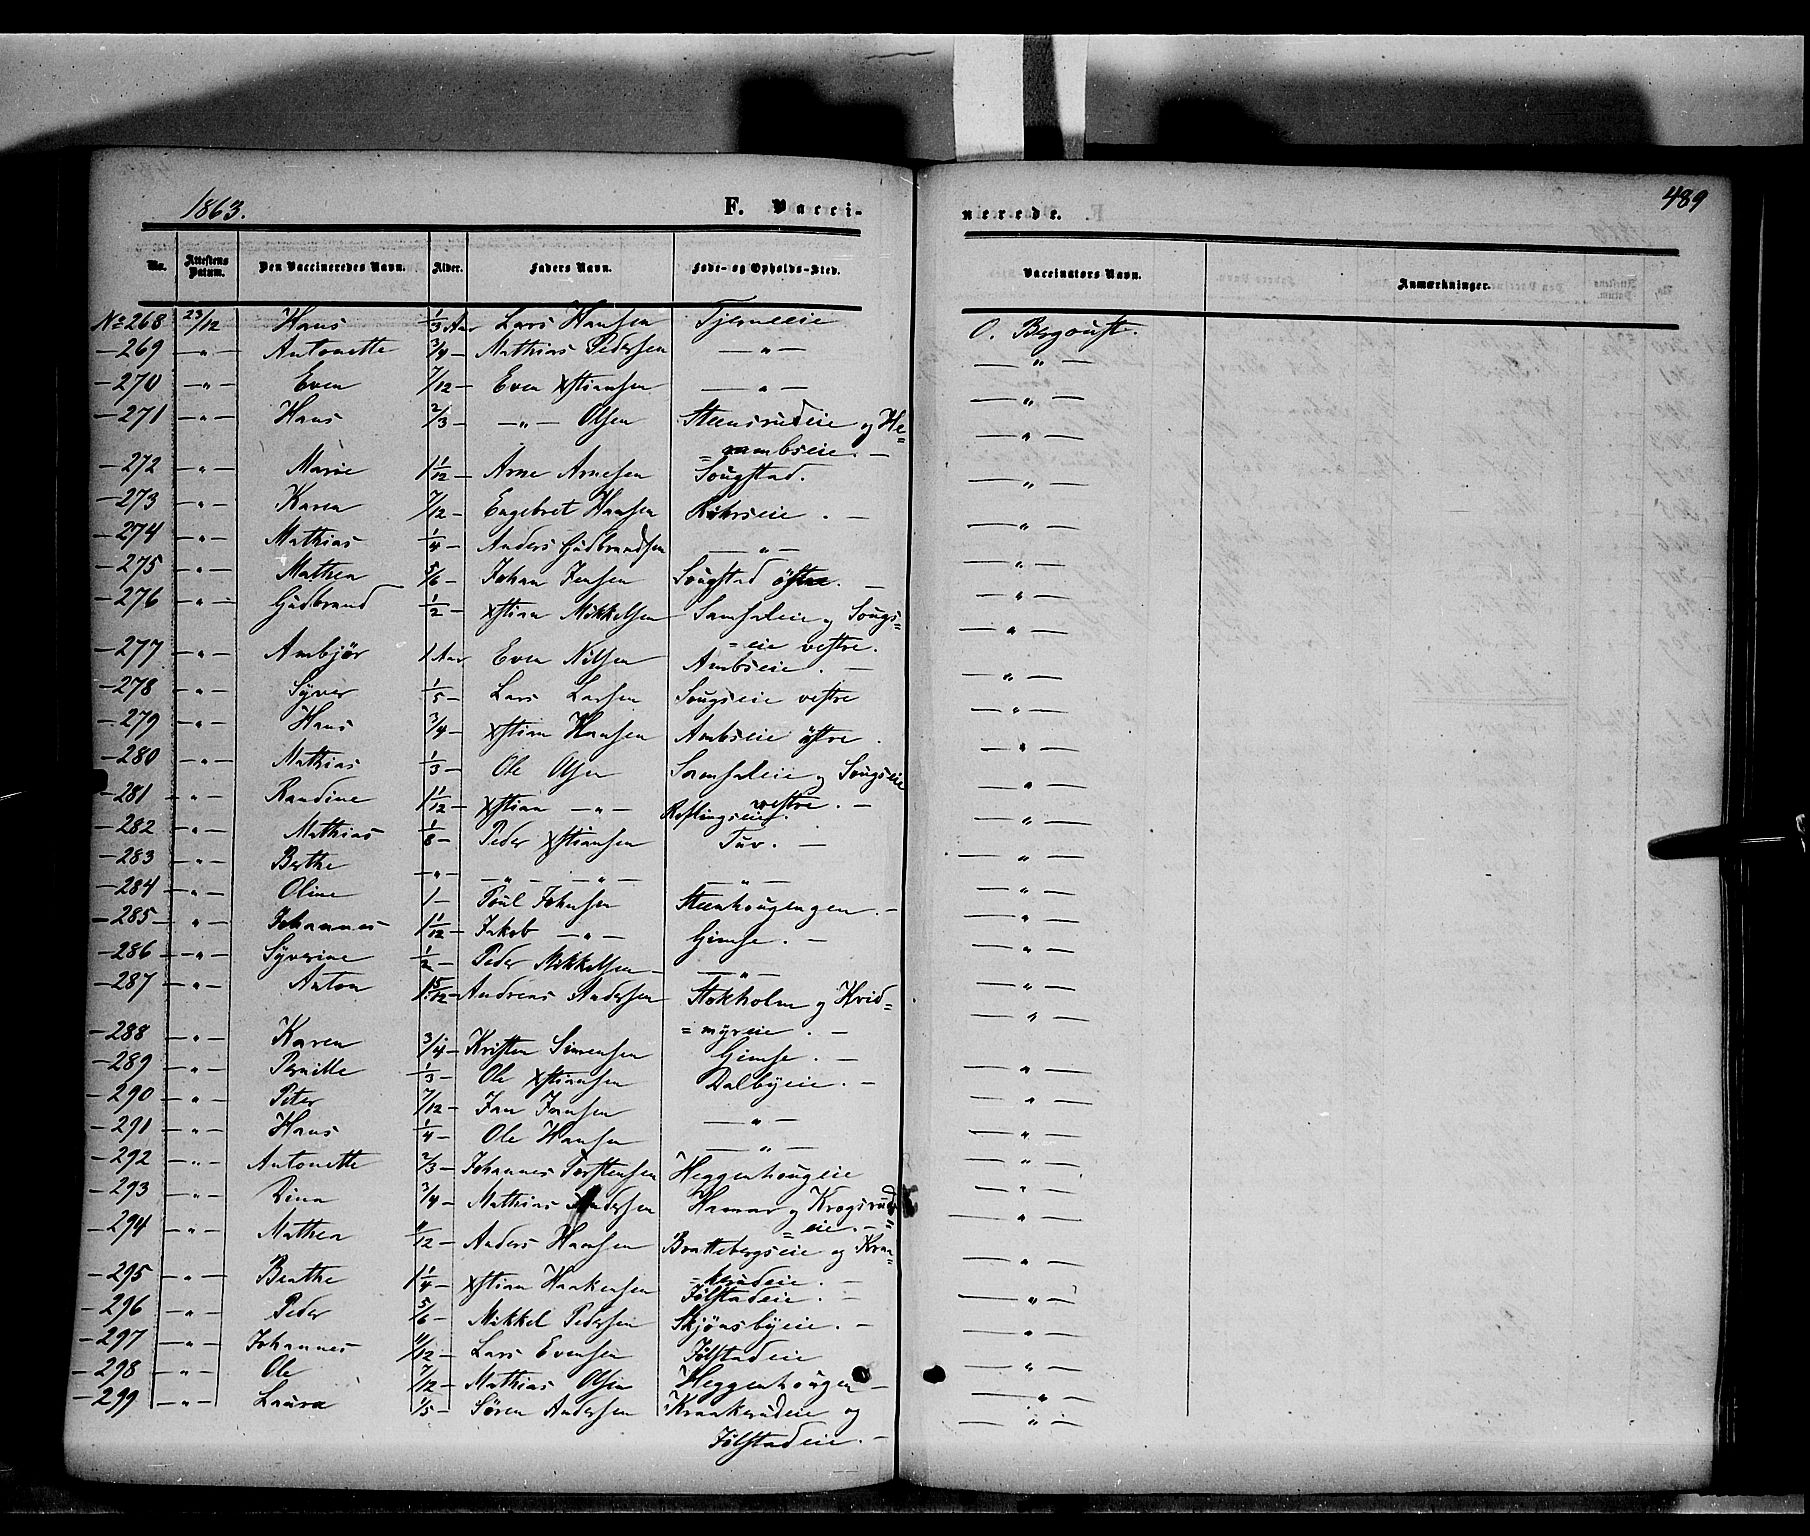 1863. F. Vacci- nerede. 489
No. Attestens Datum. Den Vaccineredes Navn. Alder. Faders Navn. Føde- og Opholds-Sted. Vaccinators Navn. Anmærkninger.
No 268 23/12 Hans 1/3 Aar Lars Hansen Tjerneeie O. Bergqvist.
— 269 — „ — Antonette 3/4 — Mathias Pedersen — „ — — „ —
— 270 — „ — Even 7/12 — Even Xstiansen — „ — — „ —
— 271 — „ — Hans 2/3 — „ — Olsen Steensrudeie og He= — „ —
= ambseie. —
— 272 — „ — Marie 1 1/12 — Arne Arnesen Sougstad. — „ —
— 273 — „ — Karen 7/12 — Engebret Hansen Röhrseie. — — „ —
— 274 — „ — Mathias 1/4 — Anders Gudbrandsen — „ — — „ —
— 275 — „ — Mathea 5/6 — Johan Jensen Sougstad östre. — — „ —
— 276 — „ — Gudbrand 1/2 — Xstian Mikkelsen Samsaleie og Sougs= — „ —
= eie vestre.
— 277 — „ — Ambjör 1 Aar Even Nilsen Ambseie. — — „ —
— 278 — „ — Syver 1/5 — Lars Larsen Sougseie vestre — „ —
— 279 — „ — Hans 3/4 — Xstian Hansen Ambseie östre. — „ —
— 280 — „ — Mathias 1/3 — Ole Olsen Samsaleie og Sougseie — „ —
vestre. —
— 281 — „ — Randine 1 1/12 — Xstian — „ — Röslingseie. — „ —
— 282 — „ — Mathias 1/8 — Peder Xstiansen Tuv. — — „ —
— 283 — „ — Berthe — „ — — „ — — „ — — „ — — „ —
— 284 — „ — Oline 1 — Poul Johnsen Steenhougengen. — — „ —
— 285 — „ — Johannes 1 1/12 — Jakob — „ — Gimse. — — „ —
— 286 — „ — Syverine 1/2 — Peder Mikkelsen — „ — — „ —
— 287 — „ — Anton 1 5/12 — Andreas Andersen Stokholm og Hvid= — „ —
= myreie. —
— 288 — „ — Karen 3/4 — Kristen Simensen Gimse. — — „ —
— 289 — „ — Pernille 1/3 — Ole Xstiansen Dalbyeie. — — „ —
— 290 — „ — Peter 7/12 — Jan Jansen — „ — — „ —
— 291 — „ — Hans 1/4 — Ole Hansen — „ — — „ —
— 292 — „ — Antonette 2/3 — Johannes Torstensen Heggenhougeie — „ —
— 293 — „ — Dina 3/4 — Mathias Andersen Hamar og Krogsrud= — „ —
= eie. —
— 294 — „ — Mathea 11/12 — Anders Hansen Brattebergseie og Kraa= — „ —
= kerudeie. —
— 295 — „ — Beathe 1 1/4 — Xstian Haakensen Jölstadeie. — — „ —
— 296 — „ — Peder 5/6 — Mikkel Pedersen Skjönsbyeie. — — „ —
— 297 — „ — Johannes 11/12 — Lars Evensen Jölstadeie — „ —
— 298 — „ — Ole 7/12 — Mathias Olsen Heggenhougen — — „ —
— 299 — „ — Laura 1/5 — Søren Andersen Kraakerudeie og — „ —
Jölstadeie. —